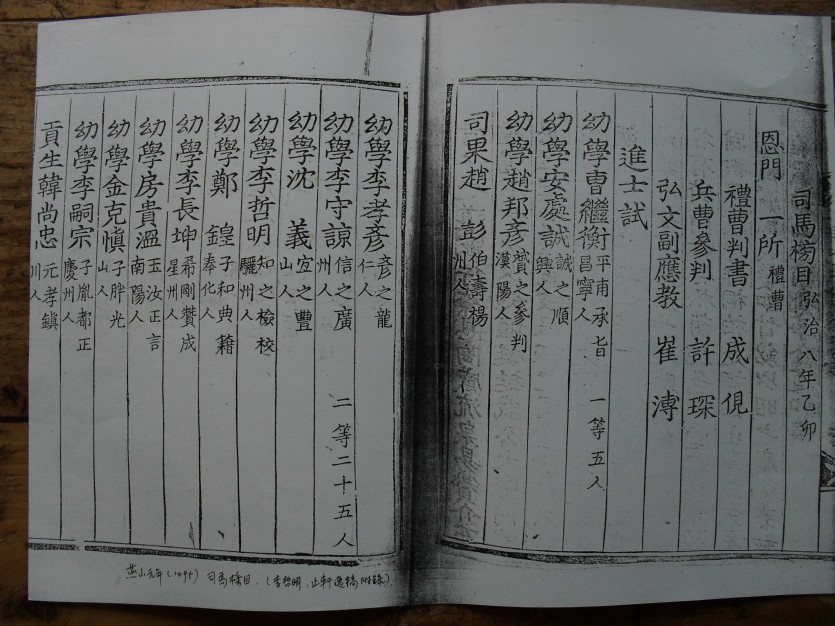 司馬榜目 弘治八年乙卯
恩門 一所 禮曹
禮曹判書 成俔
兵曹參判 許琛
弘文副應教 崔溥
進士試
幼學曹繼衡 平甫承旨昌寧人 一等五人
幼學安處誠 誠之順興人
幼學趙邦彥 贊之參判漢陽人
司果趙 彭 伯壽楊州人
幼學李孝彥 彥之龍仁人
幼學李守諒 信之廣州人 二等二十五人
幼學沈 義 宜之豐山人
幼學李哲明 知之檢校驪州人
幼學鄭 鍠 子和典籍奉化人
幼學李長坤 希剛贊成星州人
幼學房貴溫 玉汝正言南陽人
幼學金克愼 子胖光山人
幼學李嗣宗 子胤都正慶州人
貢生韓尚忠 元孝鎭川人
燕山元年(1495) 司馬榜目. (李哲明, 止軒逸稿 附錄)